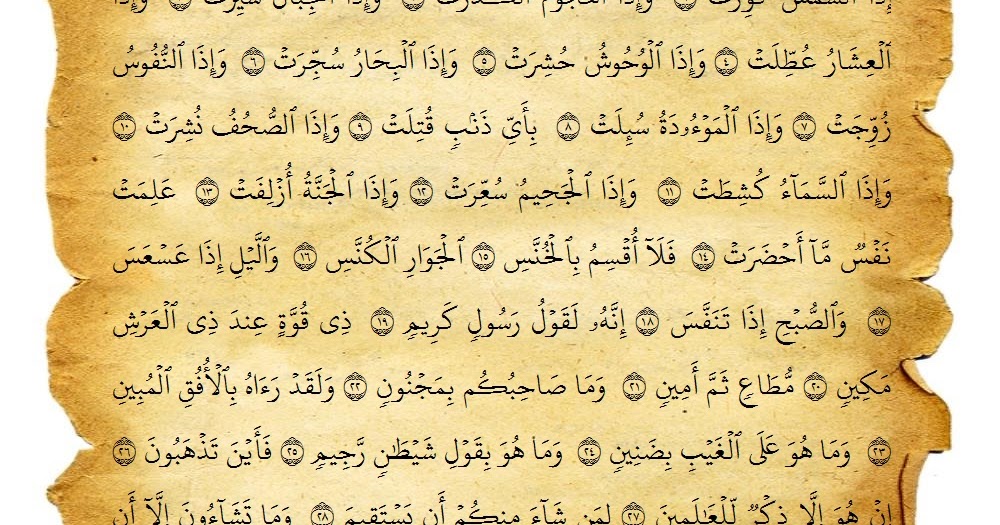 إِذَا ٱلشَّمْسُ كُوِّرَتْ ۝١ وَإِذَا ٱلنُّجُومُ ٱنكَدَرَتْ ۝٢ وَإِذَا ٱلْجِبَالُ سُيِّرَتْ ۝٣ وَإِذَا
ٱلْعِشَارُ عُطِّلَتْ ۝٤ وَإِذَا ٱلْوُحُوشُ حُشِرَتْ ۝٥ وَإِذَا ٱلْبِحَارُ سُجِّرَتْ ۝٦ وَإِذَا ٱلنُّفُوسُ
زُوِّجَتْ ۝٧ وَإِذَا ٱلْمَوْءُۥدَةُ سُئِلَتْ ۝٨ بِأَىِّ ذَنۢبٍ قُتِلَتْ ۝٩ وَإِذَا ٱلصُّحُفُ نُشِرَتْ ۝١٠
وَإِذَا ٱلسَّمَآءُ كُشِطَتْ ۝١١ وَإِذَا ٱلْجَحِيمُ سُعِّرَتْ ۝١٢ وَإِذَا ٱلْجَنَّةُ أُزْلِفَتْ ۝١٣ عَلِمَتْ
نَفْسٌ مَّآ أَحْضَرَتْ ۝١٤ فَلَآ أُقْسِمُ بِٱلْخُنَّسِ ۝١٥ ٱلْجَوَارِ ٱلْكُنَّسِ ۝١٦ وَٱلَّيْلِ إِذَا عَسْعَسَ
۝١٧ وَٱلصُّبْحِ إِذَا تَنَفَّسَ ۝١٨ إِنَّهُۥ لَقَوْلُ رَسُولٍ كَرِيمٍ ۝١٩ ذِى قُوَّةٍ عِندَ ذِى ٱلْعَرْشِ
مَكِينٍ ۝٢٠ مُّطَاعٍ ثَمَّ أَمِينٍ ۝٢١ وَمَا صَاحِبُكُم بِمَجْنُونٍ ۝٢٢ وَلَقَدْ رَءَاهُ بِٱلْأُفُقِ ٱلْمُبِينِ
۝٢٣ وَمَا هُوَ عَلَى ٱلْغَيْبِ بِضَنِينٍ ۝٢٤ وَمَا هُوَ بِقَوْلِ شَيْطَٰنٍ رَّجِيمٍ ۝٢٥ فَأَيْنَ تَذْهَبُونَ ۝٢٦
إِنْ هُوَ إِلَّا ذِكْرٌ لِّلْعَٰلَمِينَ ۝٢٧ لِمَن شَآءَ مِنكُمْ أَن يَسْتَقِيمَ ۝٢٨ وَمَا تَشَآءُونَ إِلَّآ أَن